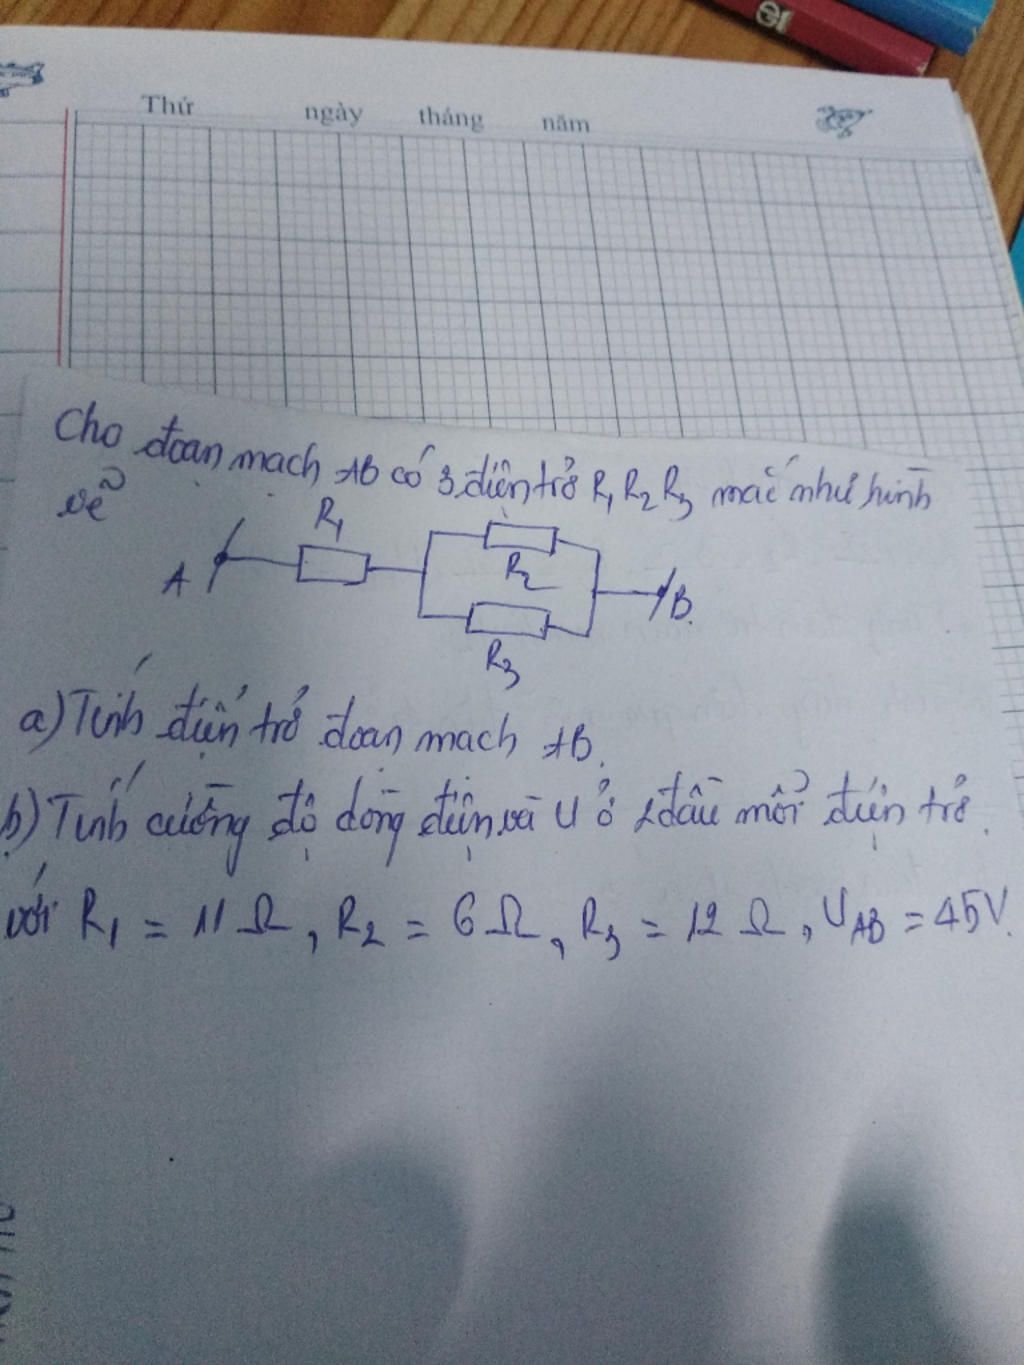 Thứ ngày tháng năm
Cho đoạn mạch AB có 3 điện trở R1 R2 R3 mắc như hình
vẽ
R1
R2
A
B.
R3
a) Tính điện trở đoạn mạch AB.
b) Tính cường độ dòng điện và U ở 2 đầu mỗi điện trở.
với R1 = 11 Ω, R2 = 6 Ω, R3 = 12 Ω, UAB = 45V.